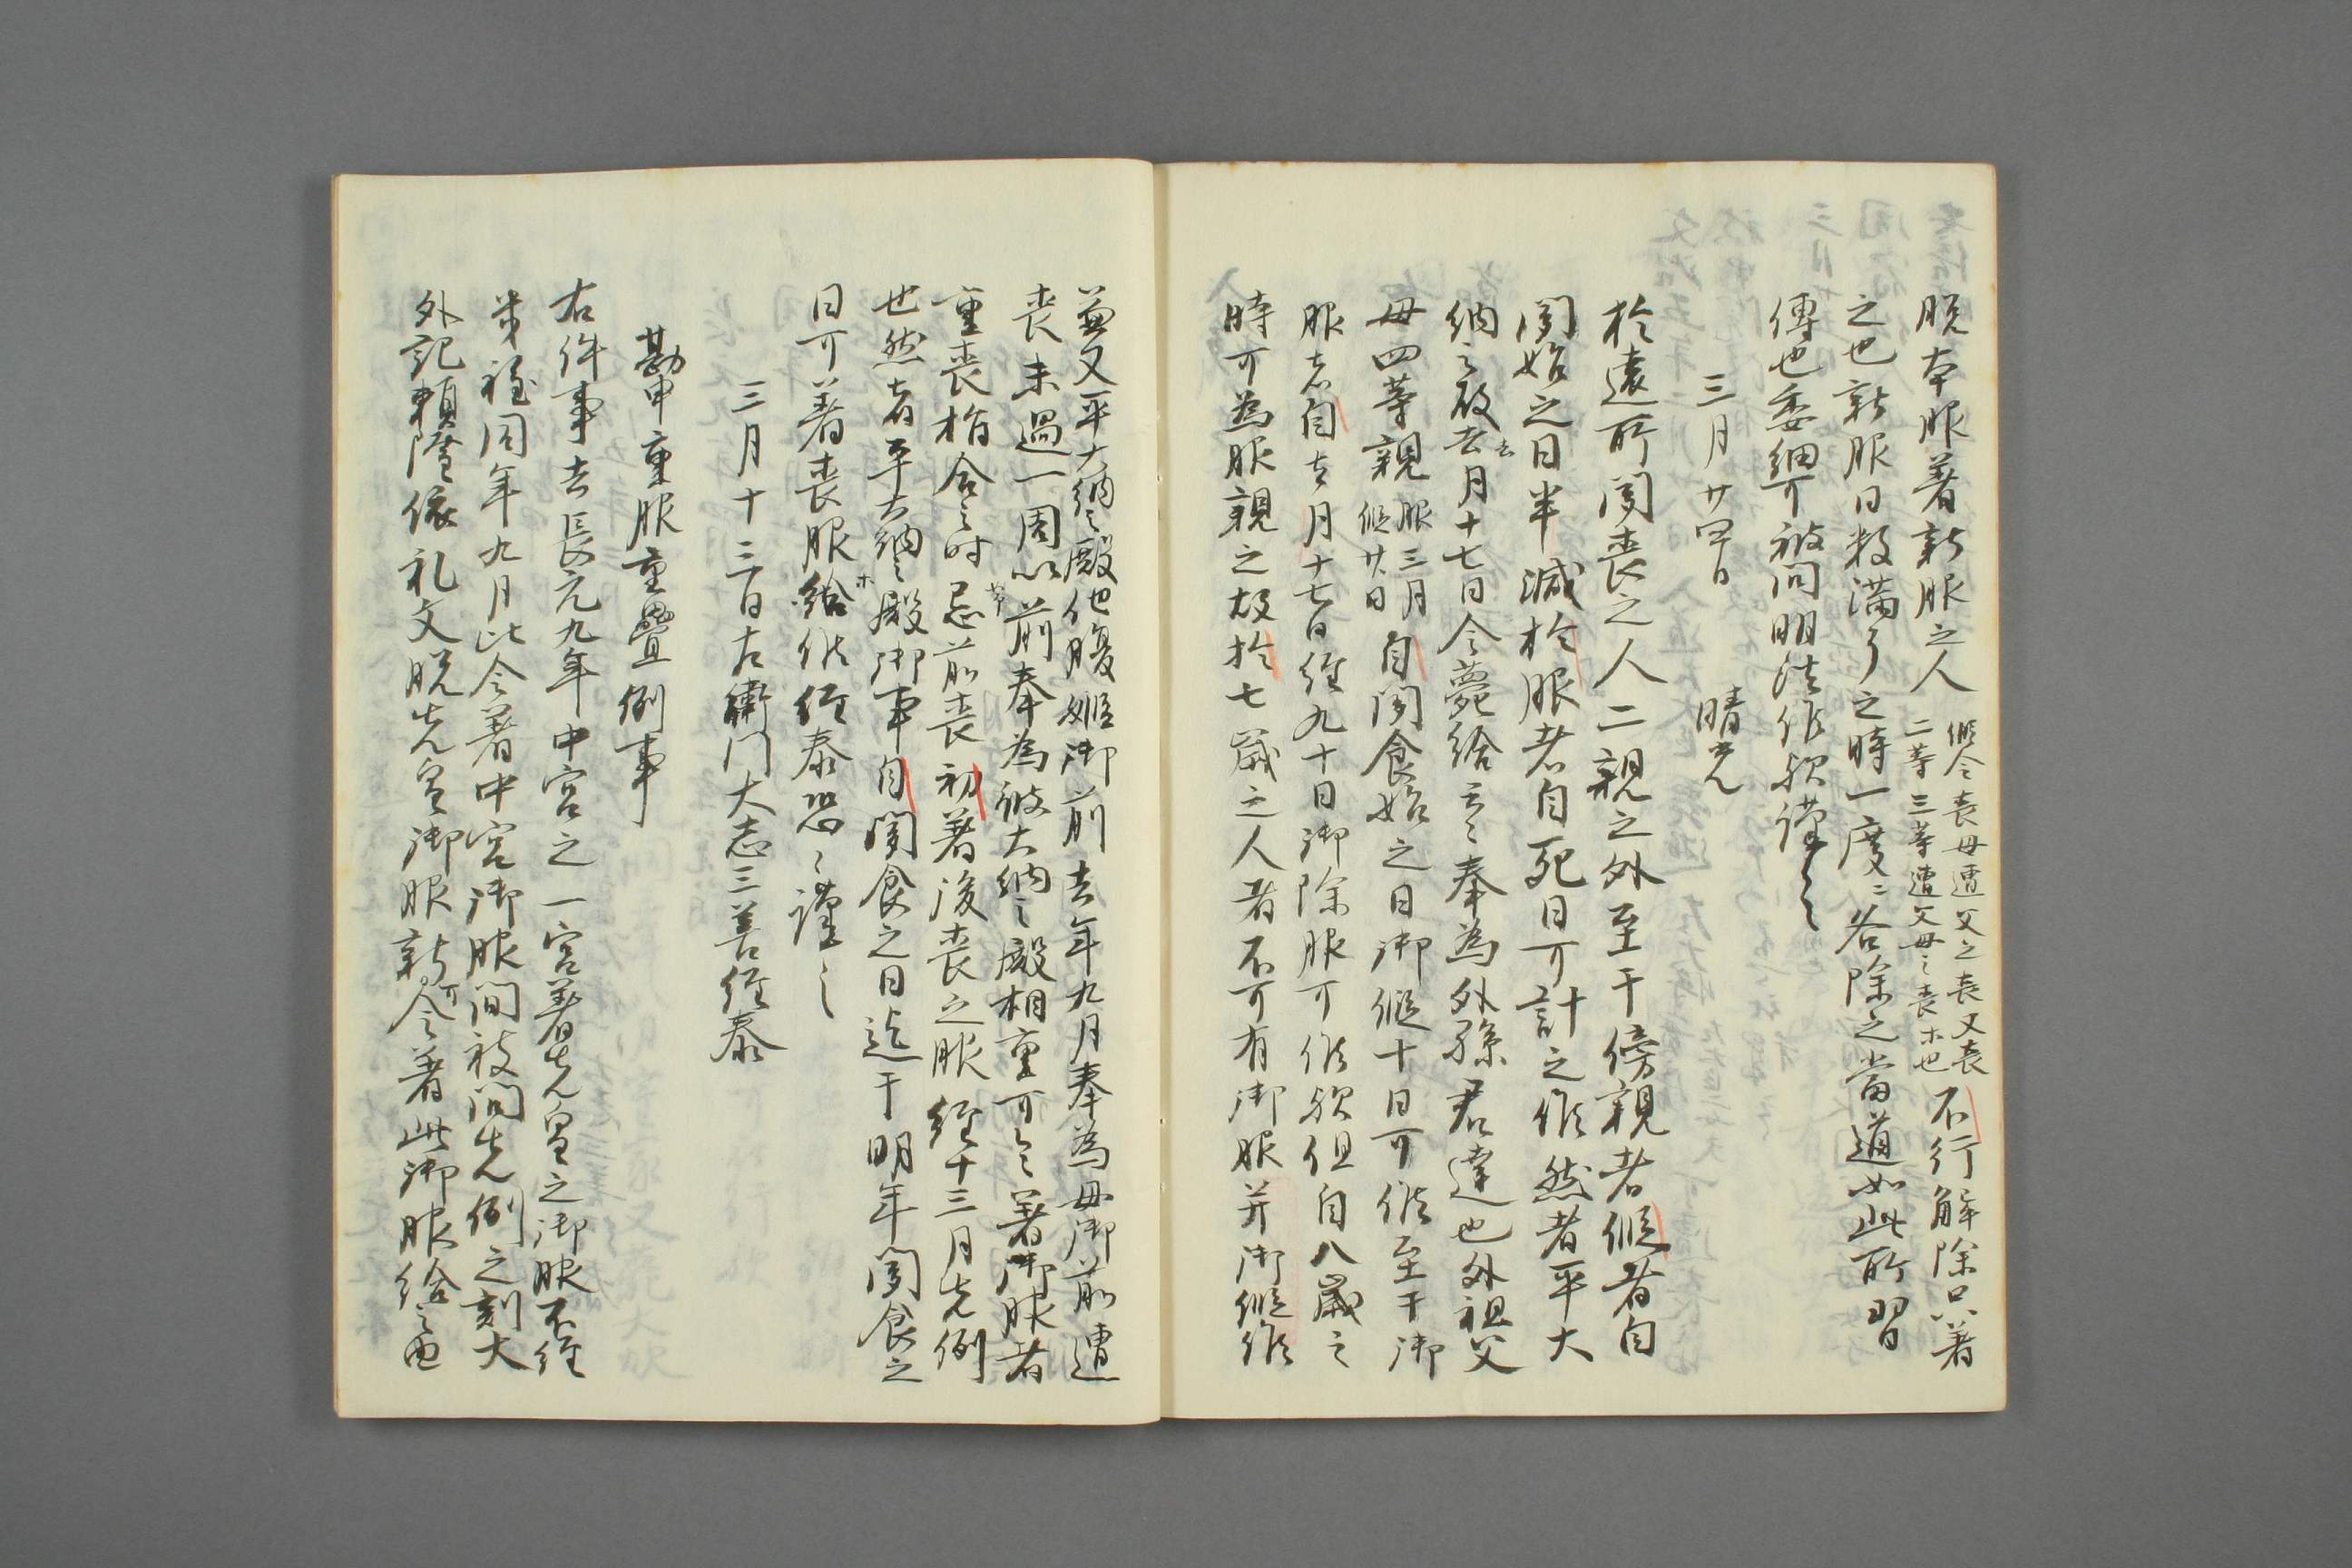 脱本服著新服之人
仮令喪母遭父之喪又喪
二等三等遭父母之喪ホ也
不行解除只著
之也新服日数満了之時一度ニ各除之當道如此所習
傳也委細可被問明法候歟謹々
三月廿四日　晴光
於遠所聞喪之人二親之外至于傍親者假者自
聞始之日半減於服者自死日可計之候然者平大
納言殿去月十七日令薨給云々奉為外孫君達也外祖父
母四等親
服三月
假廿日
自聞食始之日御假十日可候至于御
服者自去月十七日經九十日御除服可候歟但自八歳之
時可為服親之故於七歳之人者不可有御服并御假候
兼又平大納言殿他腹姫御前去年九月奉為母御前遭
喪未過一周以前奉為彼大納言殿相重可令著御服者
重喪指合之時忌前喪初著後喪之服經十三月先例
也然者平大納言殿御事自聞食之日迄于明年聞食之
日可著喪服給候經泰恐々謹言
三月十三日左衛門大志三善經泰
勘申重服重疊例事
右件事去長元九年中宮之一宮著先皇之御服不經
幾程同年九月比令著中宮御服間被問先例之刻大
外記頼隆依礼文脱先皇御服新可令著此御服給之由